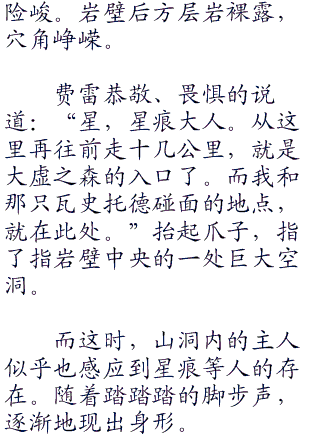 险峻。岩壁后方层岩裸露，
穴角峥嵘。
费雷恭敬、畏惧的说
道：“星，星痕大人。从这
里再往前走十几公里，就是
大虚之森的入口了。而我和
那只瓦史托德碰面的地点，
就在此处。”抬起爪子，指
了指岩壁中央的一处巨大空
洞。
而这时，山洞内的主人
似乎也感应到星痕等人的存
在。随着踏踏踏的脚步声，
逐渐地现出身形。